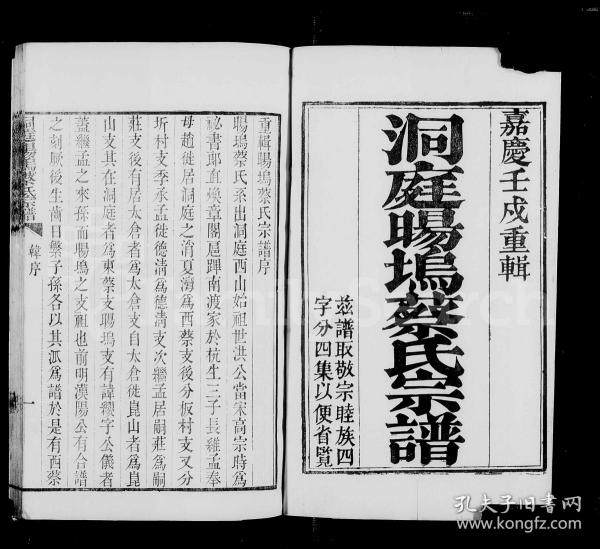 嘉慶壬戌重輯
洞庭暘塢蔡氏宗譜
茲譜取敬宗睦族四
字分四集以便省覽
重輯暘塢蔡氏宗譜序
暘塢蔡氏系出洞庭西山始祖世洪公當宋高宗時爲
祕書郎直煥章閣扈蹕南渡家於杭生三子長維孟奉
母趙徙居洞庭之消夏灣爲西蔡支後分板村支又分
圻村支季承孟徙德清爲德清支次繼孟居嗣莊爲嗣
莊支後有居太倉者爲太倉支自太倉徙崑山者爲崑
山支其在洞庭者爲東蔡支暘塢支有諱櫻字公儀者
蓋繼孟之來孫而暘塢之支祖也前明漢陽公有合譜
之刻厥後生齒日繁子孫各以其派爲譜於是有西蔡
洞庭暘塢蔡氏宗譜
韓序
一
FamilySearch
孔夫子旧书网
www.kongfz.com